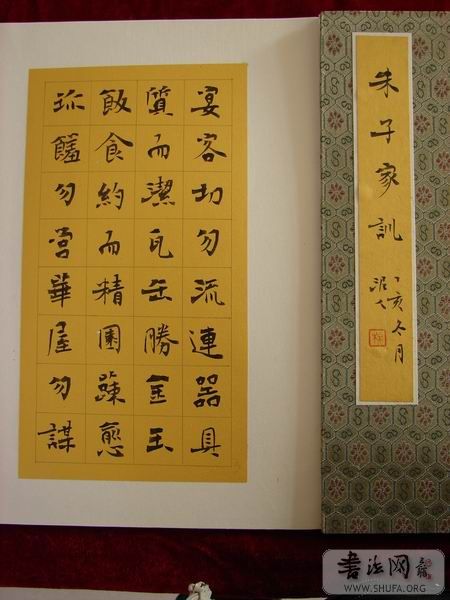 朱子家訓
丁亥冬月
宴客切勿流連器具
質而潔瓦缶勝金玉
飲食約而精園蔬愈
珍饈勿營華屋勿謀
書法网
WWW.SHUFA.ORG